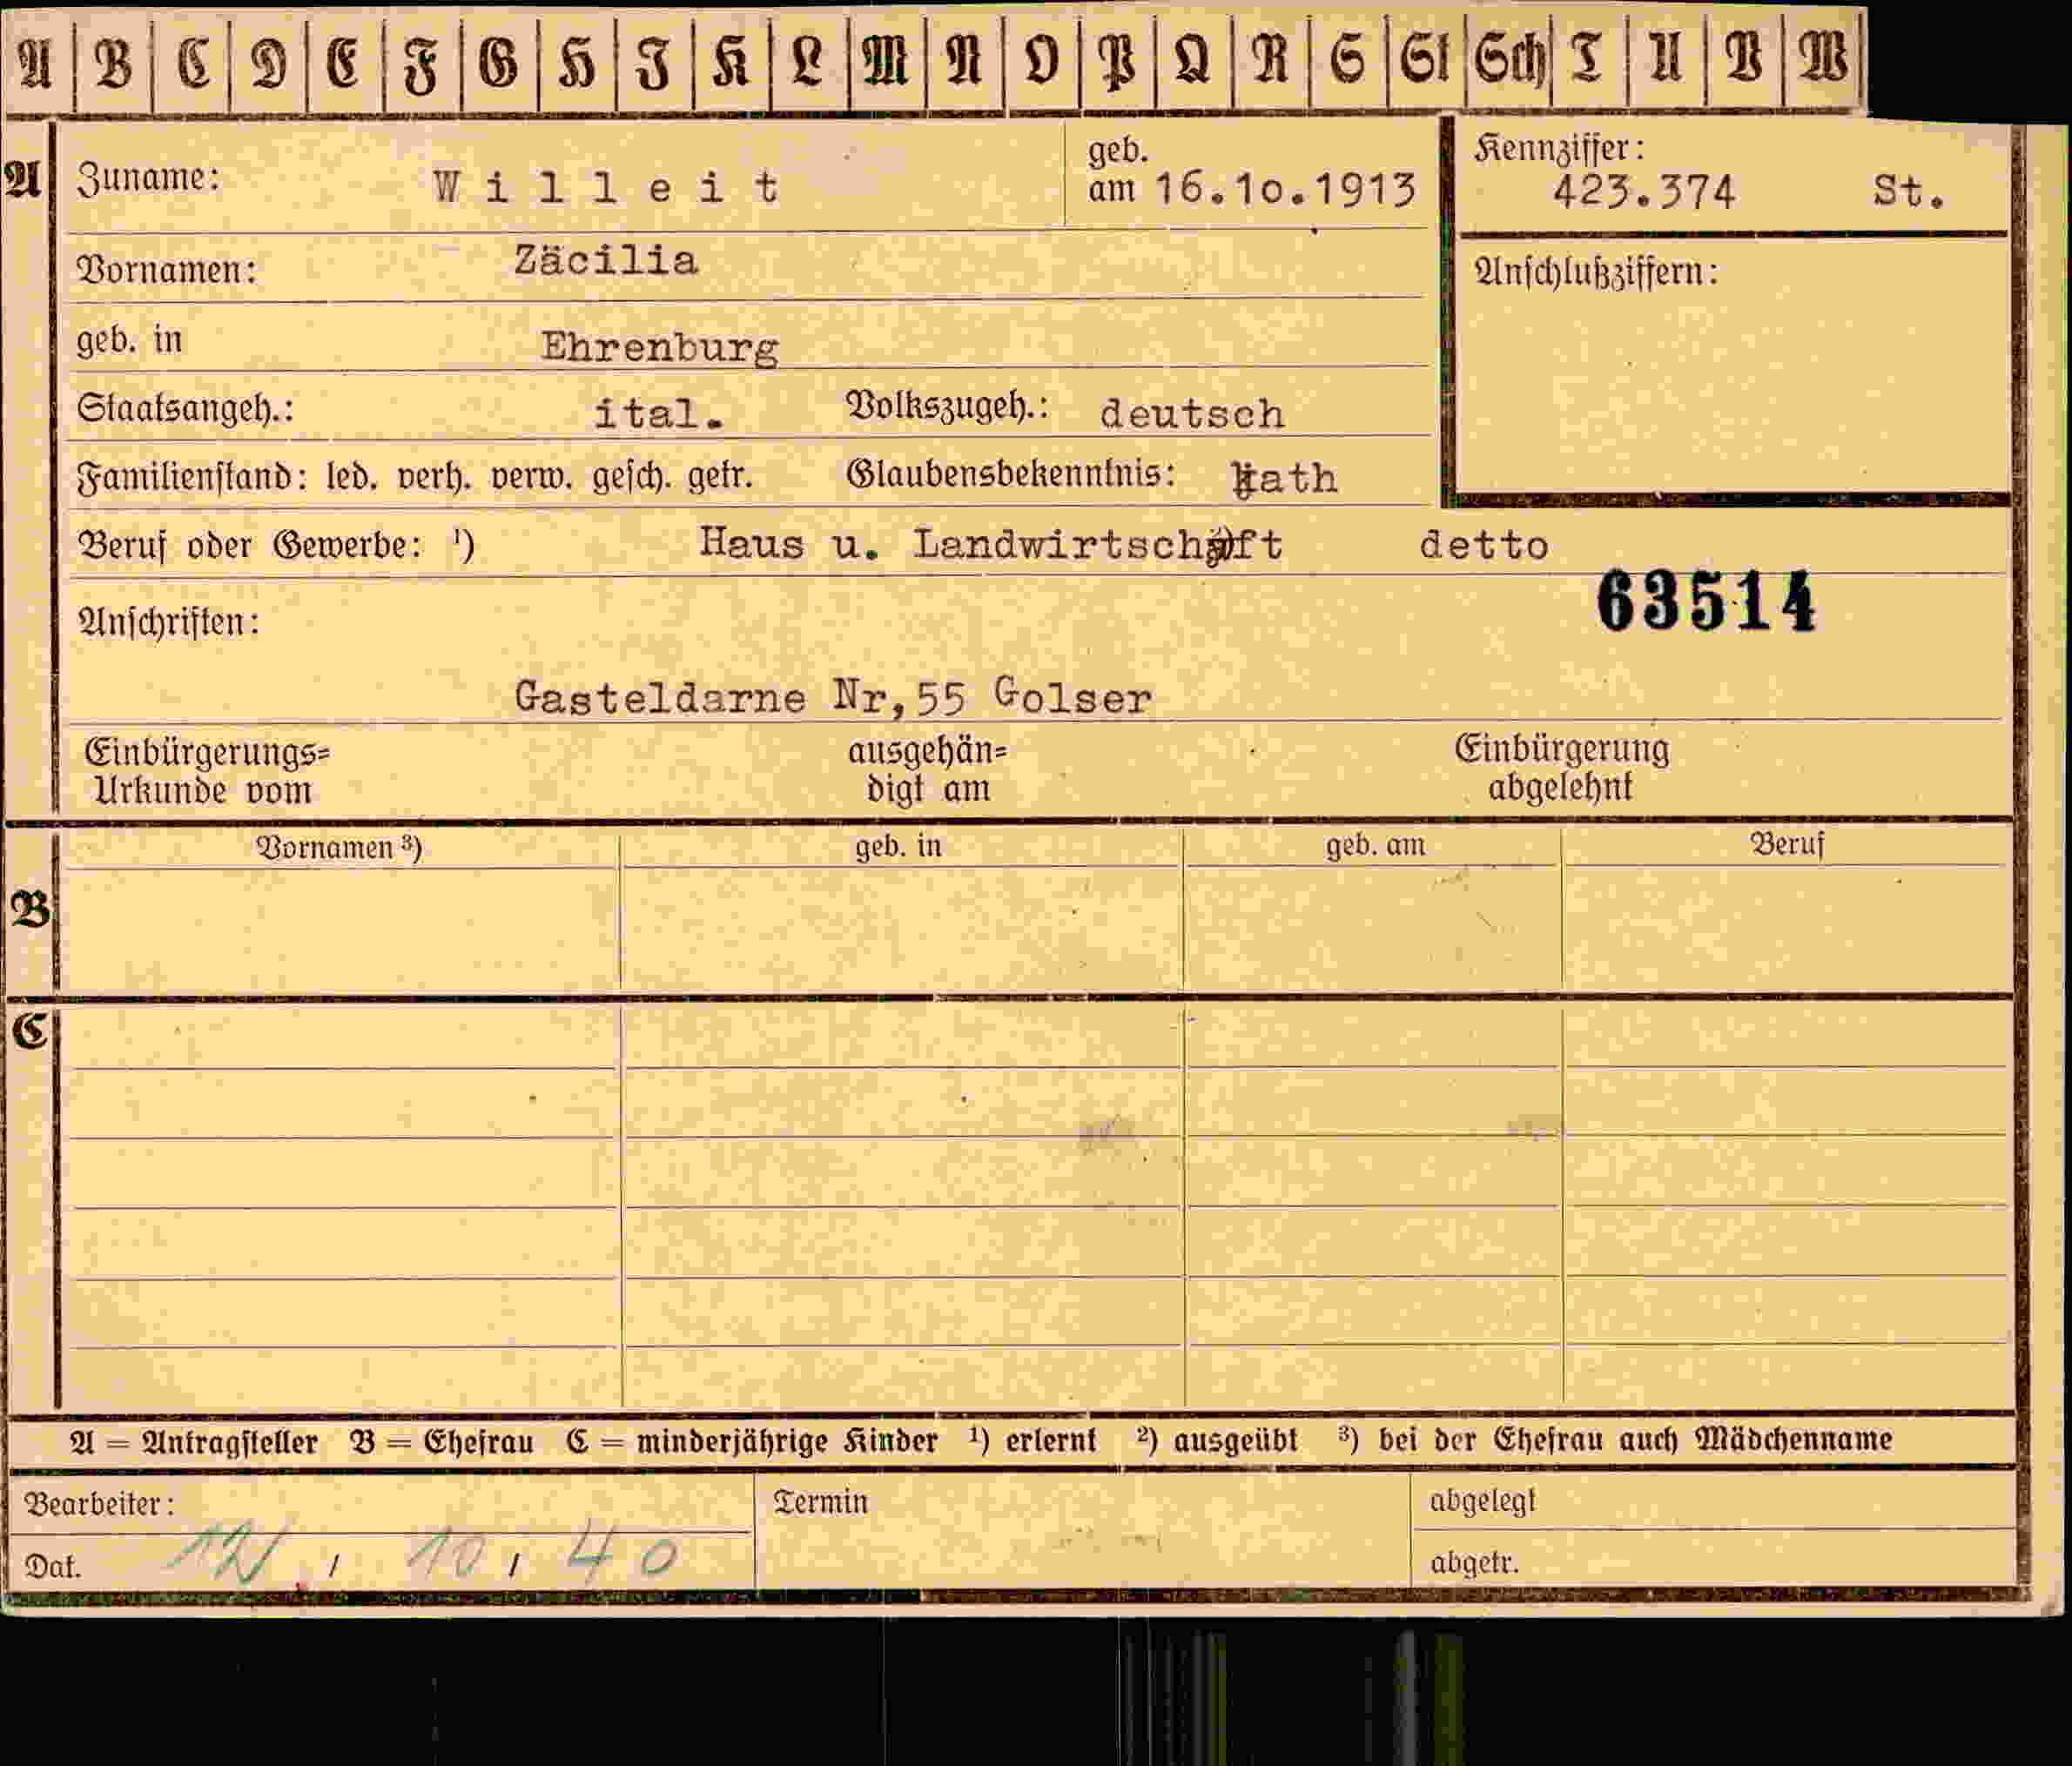 A B C D E F G H I K L M N O P Q R S St Sch T U V W
A Zuname: Willeit geb. am 16.10.1913 Kennziffer: 423.374 St.
Vornamen: Zäcilia Anschlußziffern:
geb. in Ehrenburg
Staatsangeh.: ital. Volkszugeh.: deutsch
Familienstand: led. verh. verw. gesch. getr. Glaubensbekenntnis: kath
Beruf oder Gewerbe: ¹) Haus u. Landwirtschaft ²) detto
63514
Anschriften:
Gasteldarne Nr,55 Golser
Einbürgerungs= ausgehän= Einbürgerung
Urkunde vom digt am abgelehnt
Vornamen ³) geb. in geb. am Beruf
B
C
A = Antragsteller B = Ehefrau C = minderjährige Kinder ¹) erlernt ²) ausgeübt ³) bei der Ehefrau auch Mädchenname
Bearbeiter: Termin abgelegt
Dat. 12 / 10 / 40 abgetr.